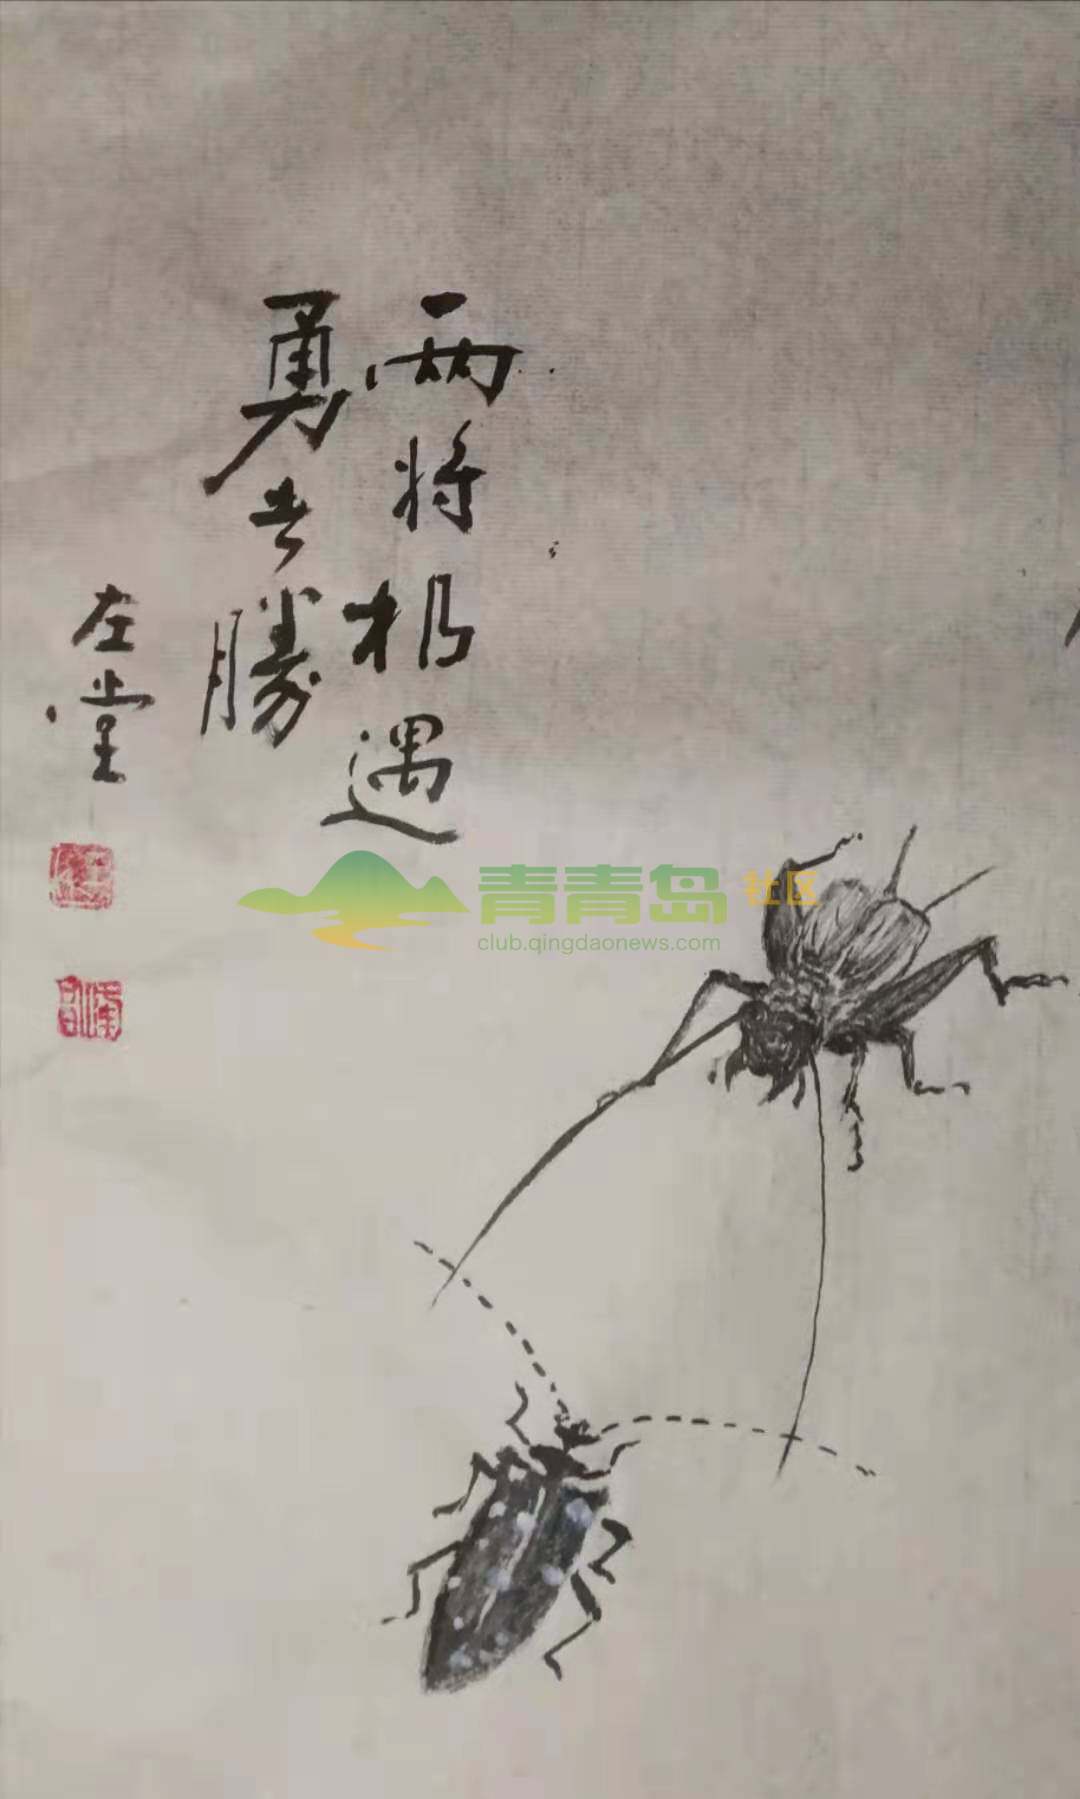 两将相遇
勇者勝
左堂
青青岛社区
club.qingdaonews.com